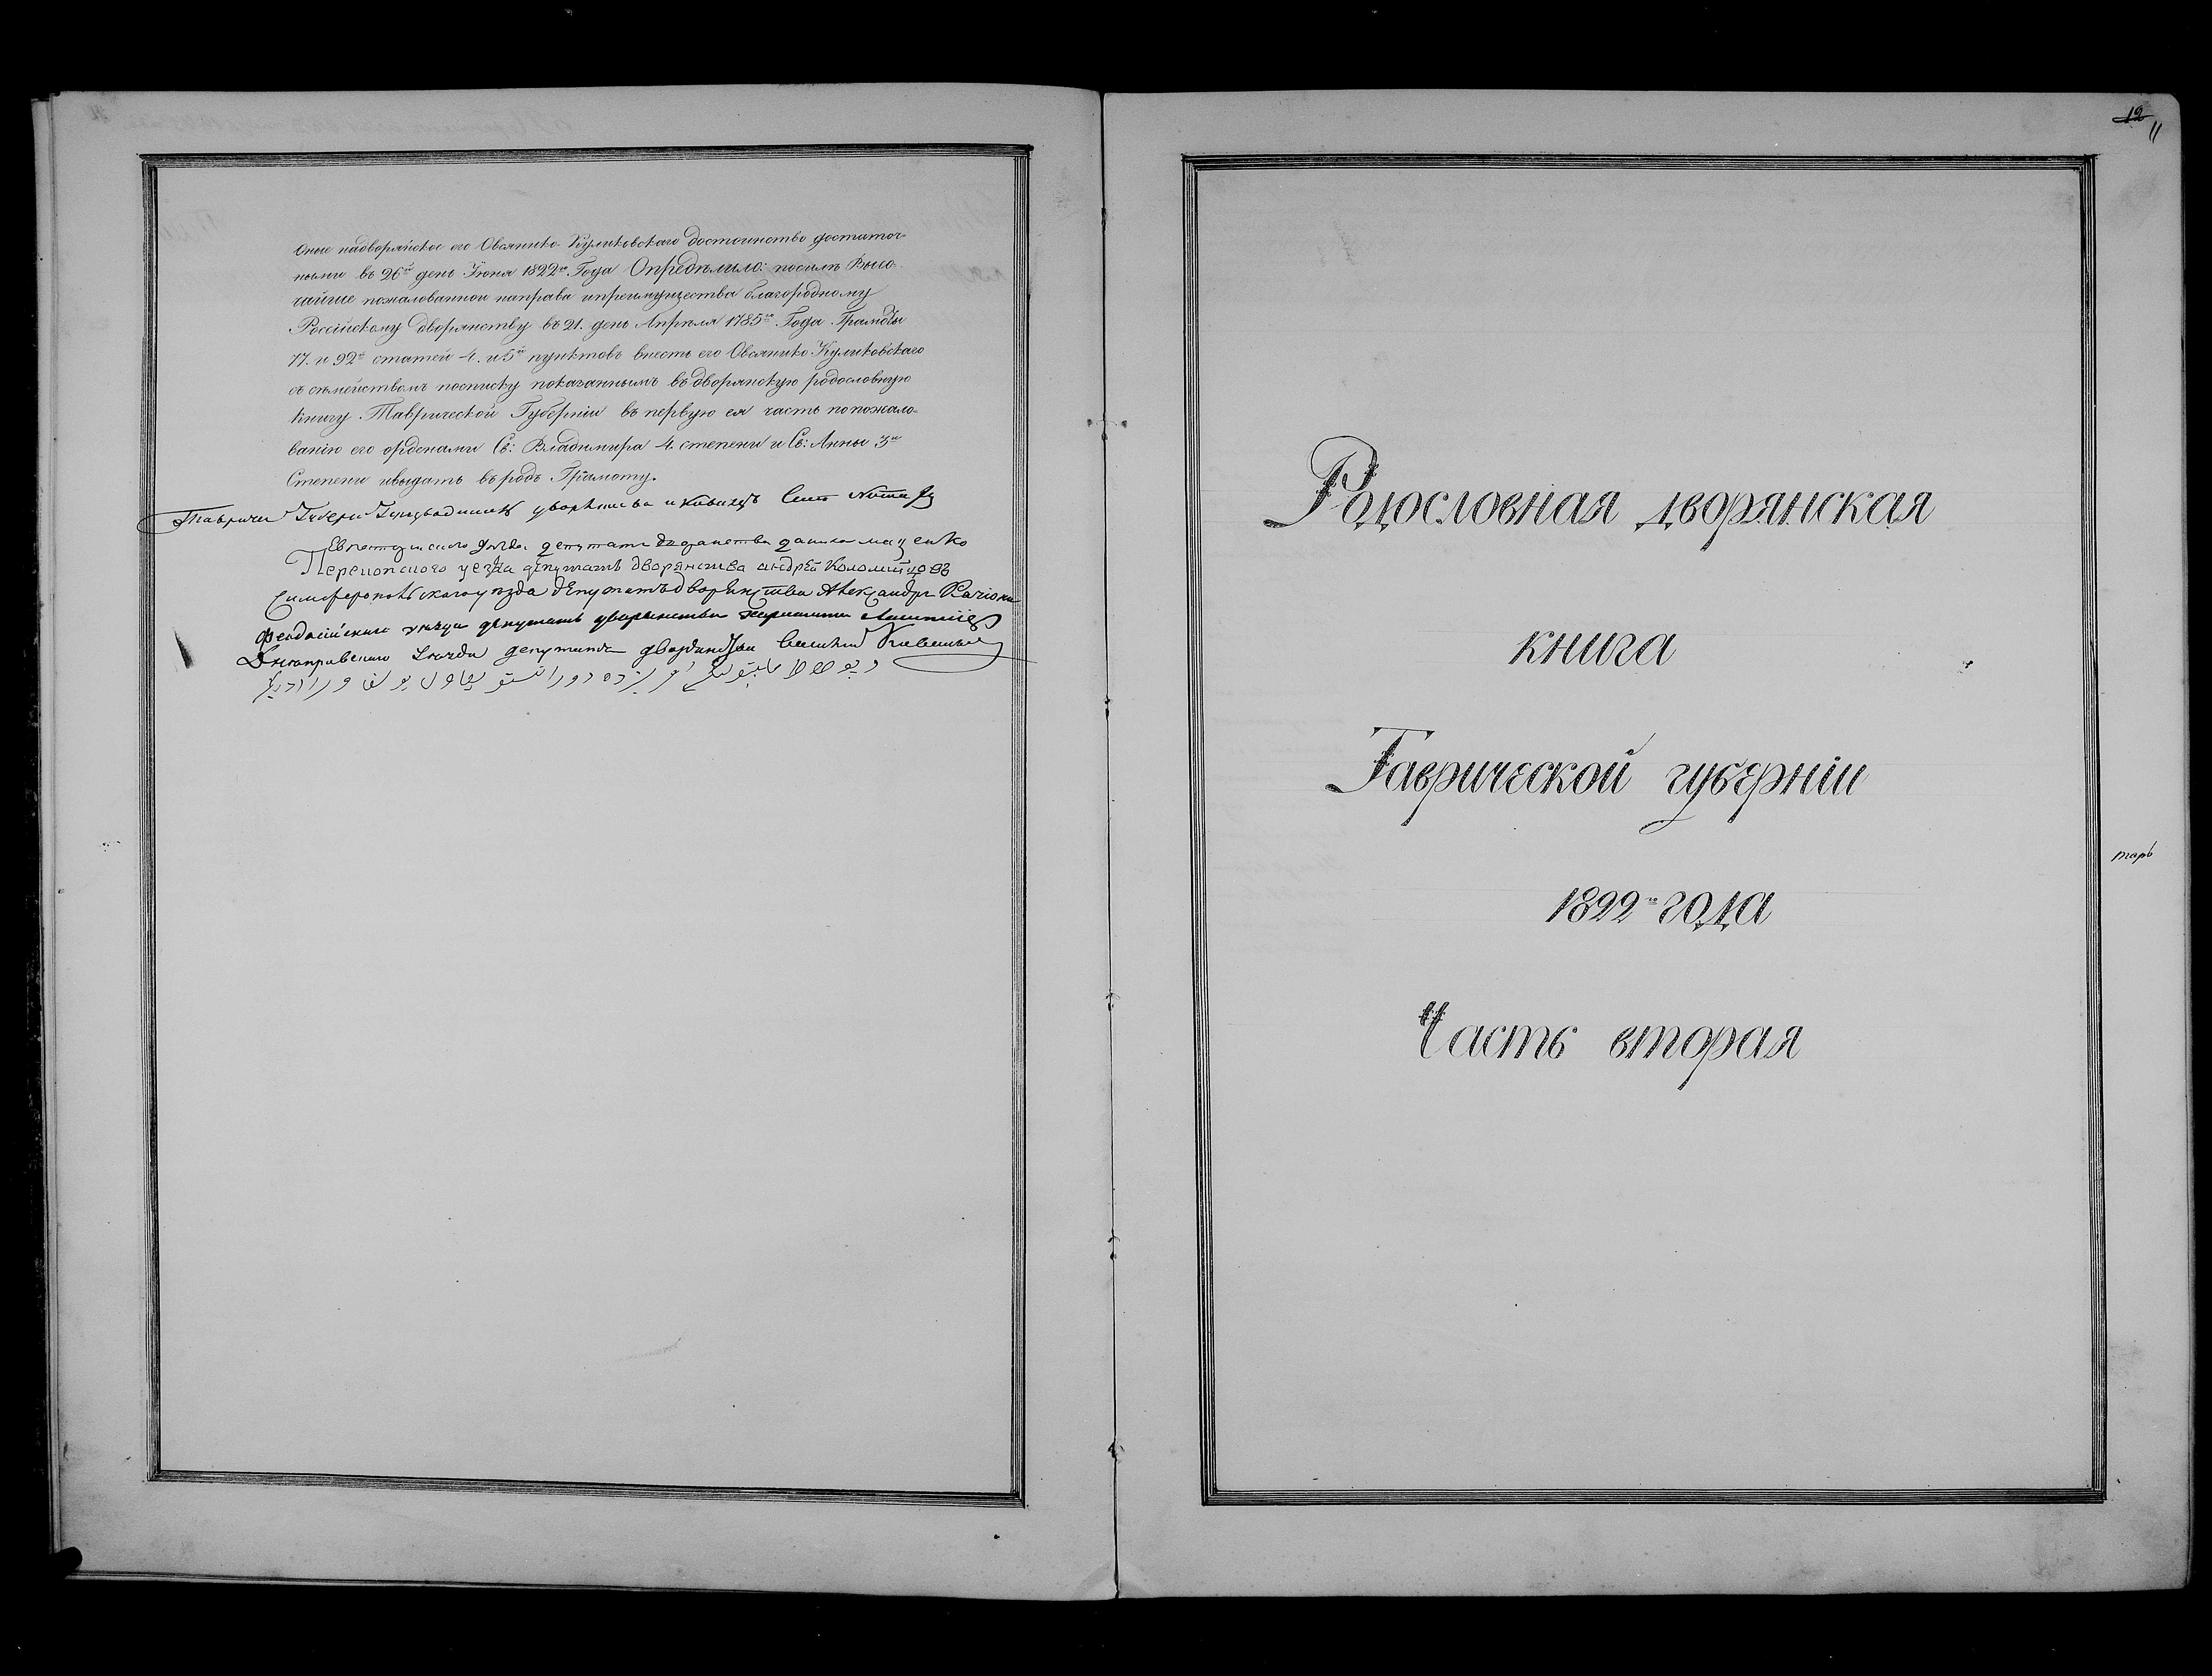 оные надворянское его Овсянико-Куликовскаго достоинство достаточ-
ными въ 26й день Июня 1822го Года Определило: посиле Высо-
чайше пожалованной направа ипреимущества благородному
Россійскому дворянству въ 21. день Апреля 1785го Года Грамоты
77. и 92й статей 4. и 5й пунктовъ внесть его Овсянико Куликовскаго
съ семействомъ посписку показаннымъ въ дворянскую родословную
книгу Таврической Губерніи въ первую ея часть по пожало-
ванію его орденами Св: Владимира 4. степени и Св: Анны 3й
Степени ивыдать въ родъ Грамоту.
дворянства и
депутатъ
Перекопского уезда депутатъ дворянства андрей
Симферопольского уезда депутатъ дворянства Александръ
Феодосійскаго уезда депутатъ дворянства
Днепровскаго уезда депутатъ дворянства
12
11
Родословная дворянская
книга
Таврической губерніи
1822го года
Часть вторая
тарь